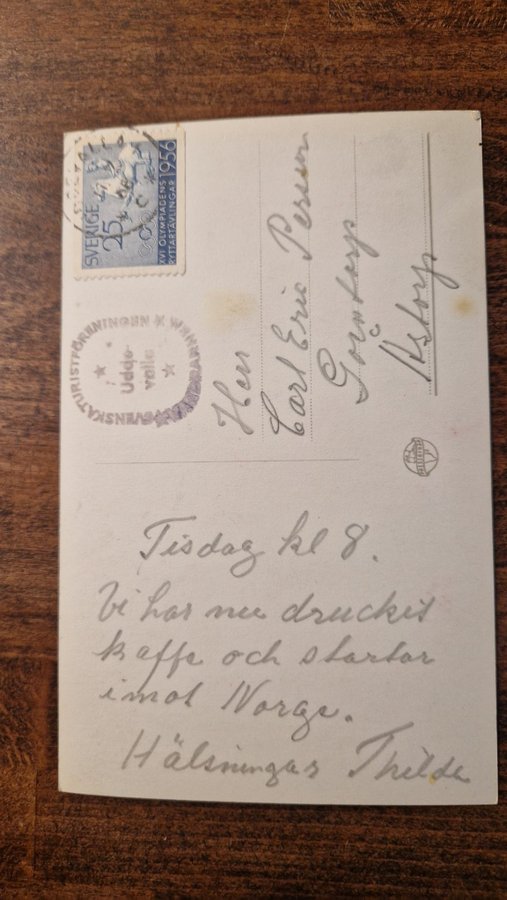 SVERIGE
25
XVI OLYMPIADENS
RYTTARTÄVLINGAR 1956
SVENSKA TURISTFÖRENINGEN
VANDRARHEM
Udde-
valla
Herr
Carl Eric Persson
Åstorp
Tisdag kl 8.
Vi har nu druckit
kaffe och startar
imot Norge.
Hälsningar Thilda